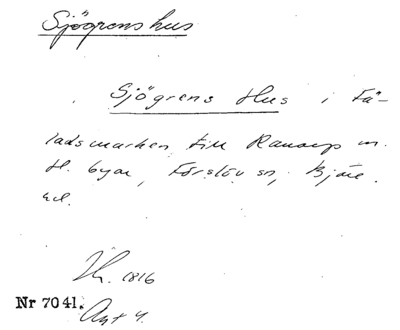 Sjögrenshus
Sjögrens Hus i Fä-
ladsmarken till Ranarp m.
fl. byar, Förslöv sn, Bjäre
hd.
1816
Nr 7041.
Akt 4.